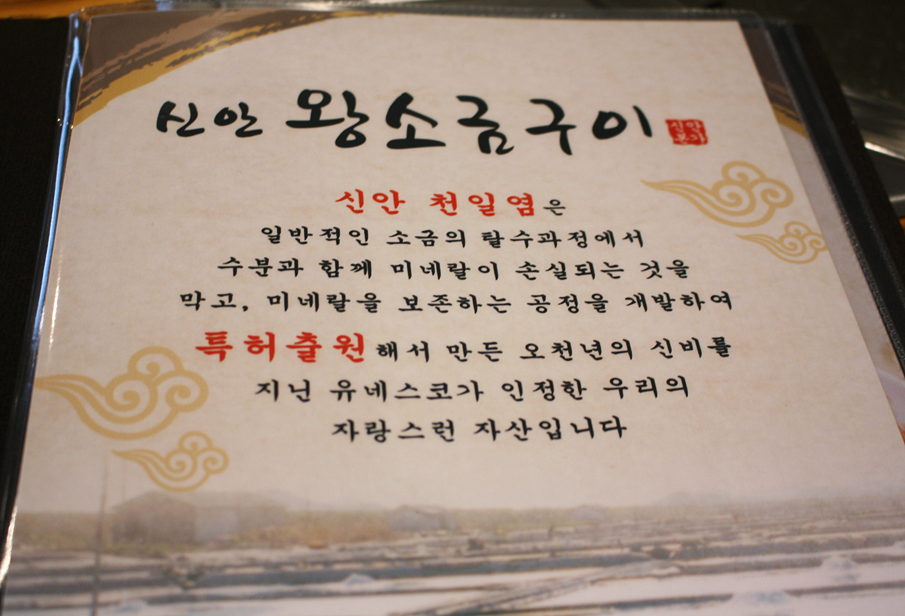 신안 왕소금구이 신안본가
신안 천일염은
일반적인 소금의 탈수과정에서
수분과 함께 미네랄이 손실되는 것을
막고, 미네랄을 보존하는 공정을 개발하여
특허출원해서 만든 오천년의 신비를
지닌 유네스코가 인정한 우리의
자랑스런 자산입니다